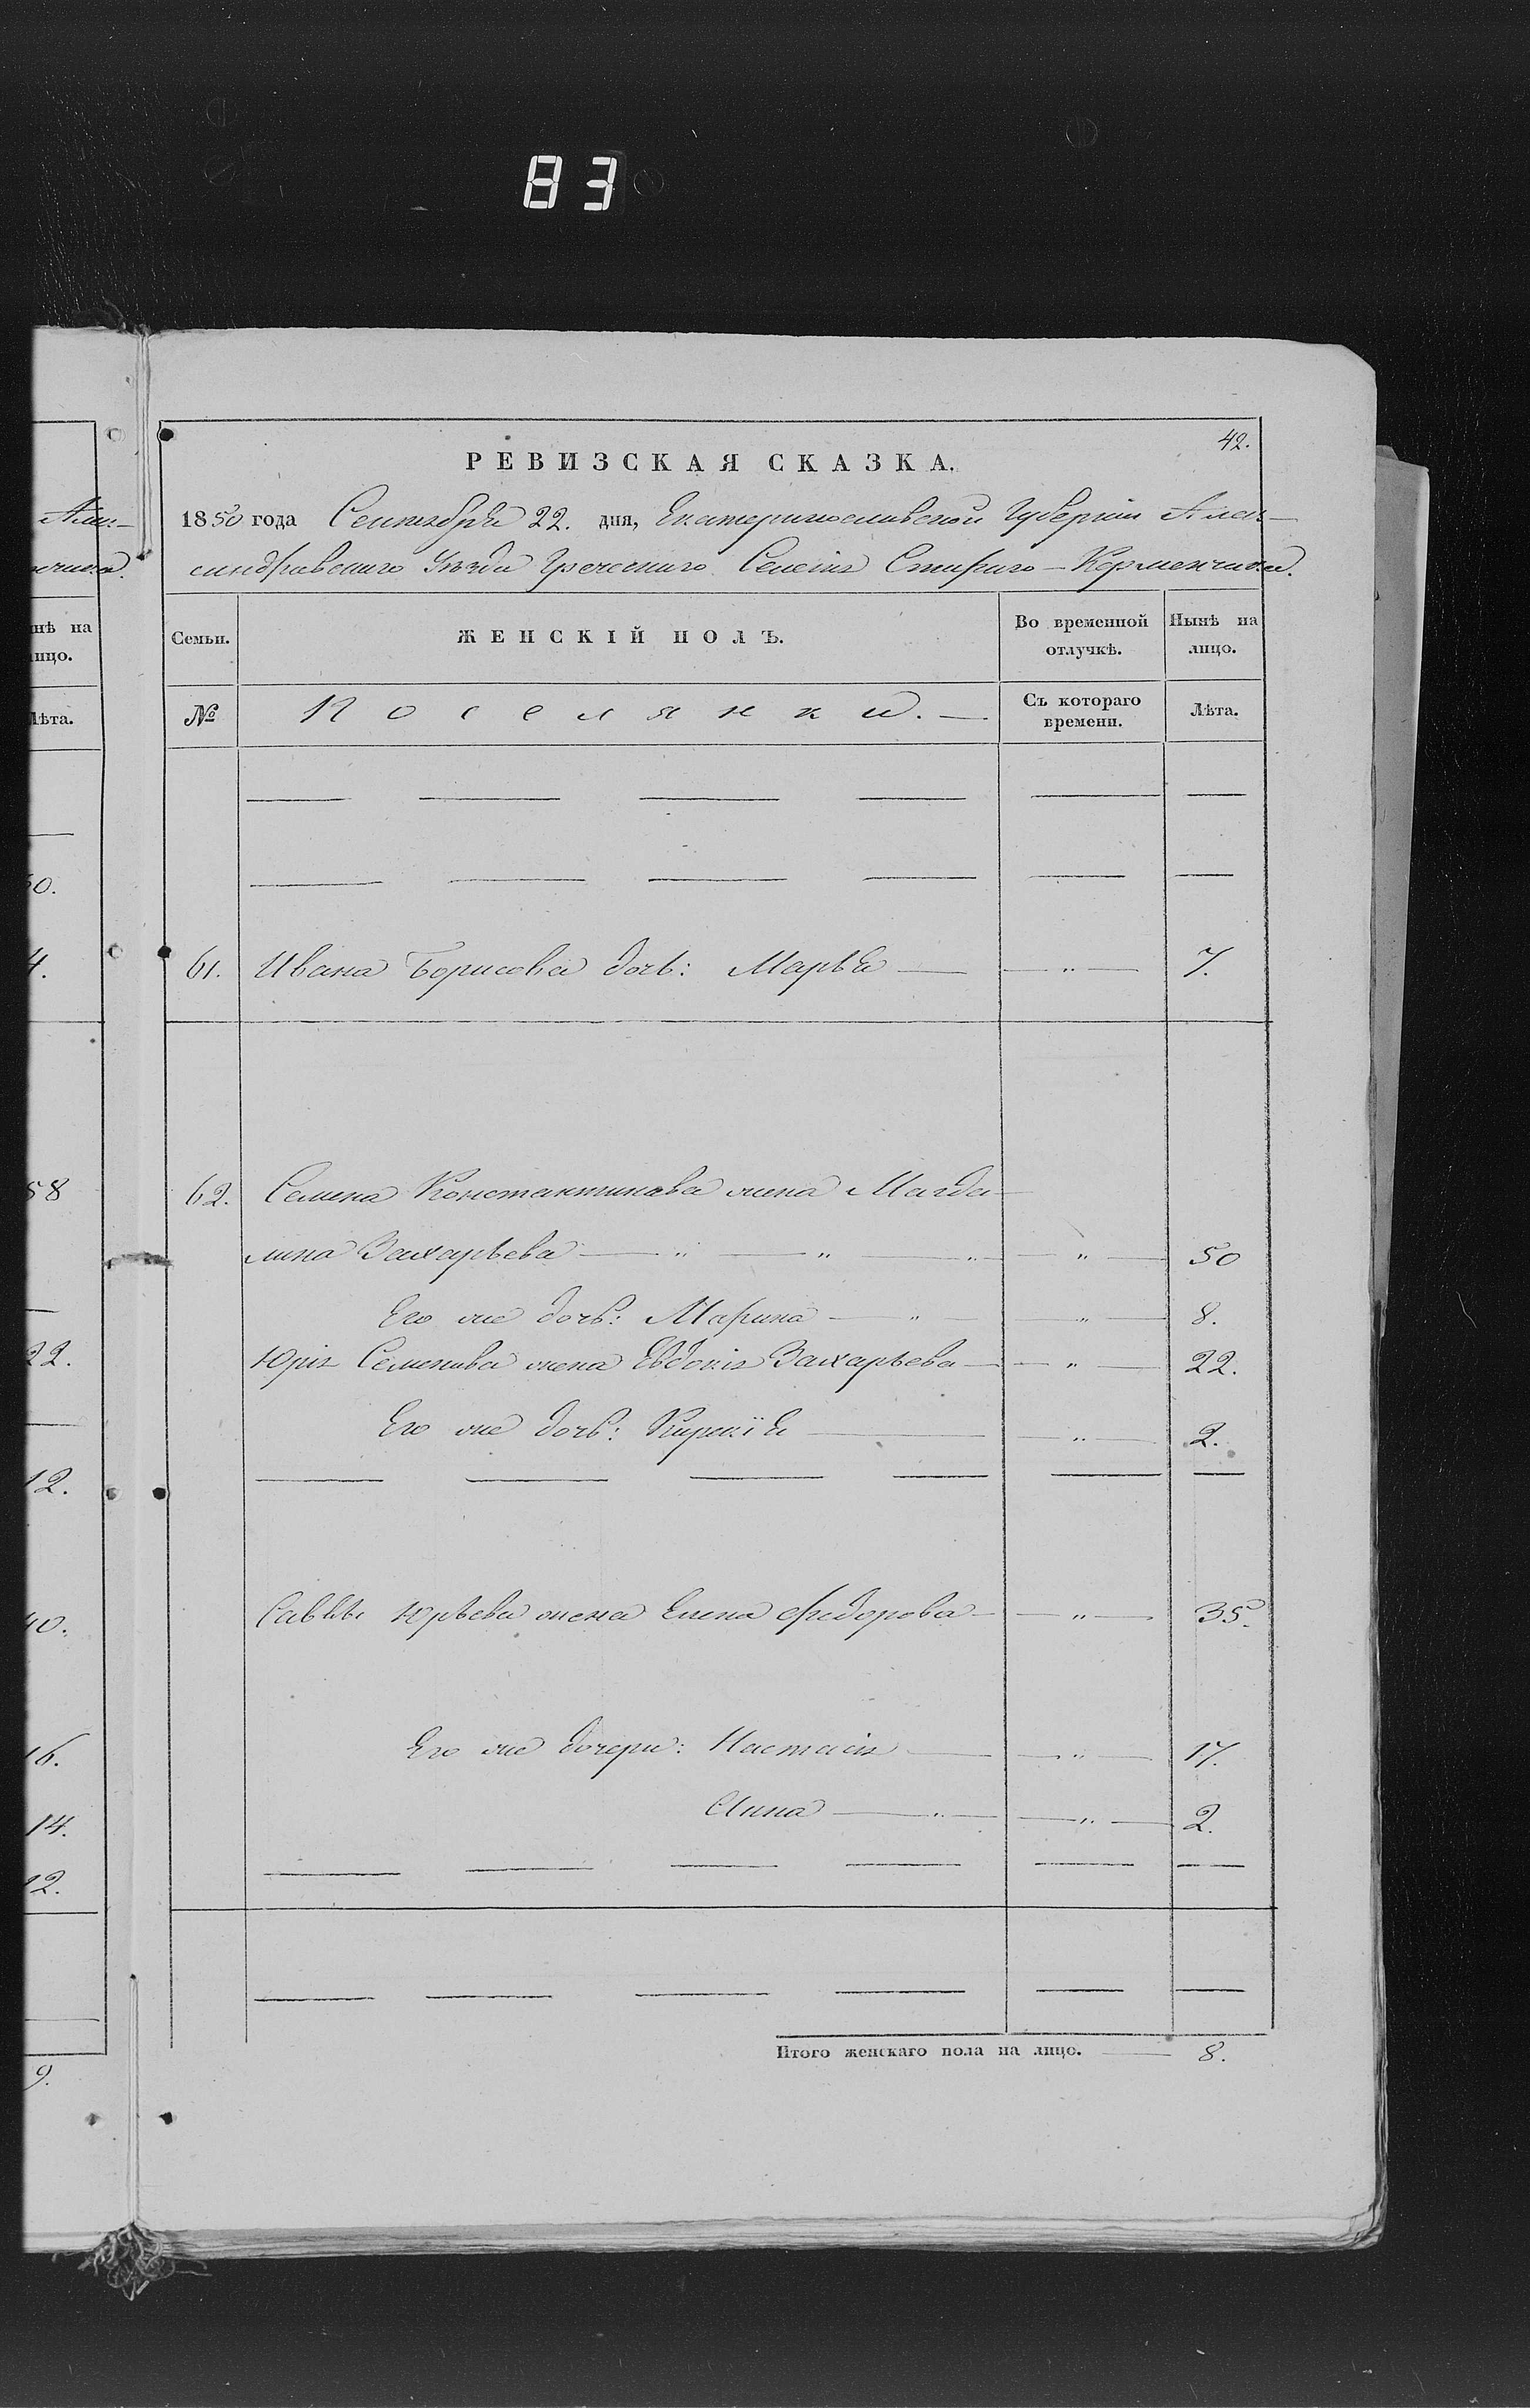 83
42.
РЕВИЗСКАЯ СКАЗКА.
1850 года Сентября 22. дня, Екатеринославской Губернiи Алек-
сандровскаго Уѣзда Греческаго Селенiя Стараго-Керменчика.
Семьи. ЖЕНСКIЙ ПОЛЪ. Во временной отлучкѣ. Нынѣ на лицо.
№ Поселянки. Съ котораго времени. Лѣта.
61. Ивана Борисова дочь: Марья — " — 7.
62. Семена Константинова жена Магда-
лина Захарьева — " — " — " — " — 50
Его же дочь: Марина — " — " — 8.
Юрiя Семенова жена Евдокiя Захарьева — " — 22.
Его же дочь: Кирикiя — " — 2.
Саввы Юрьева жена Елена Федорова — " — 35.
Его же дочери: Настасiя — " — 17.
Анна — " — " — 2.
Итого женскаго пола на лицо. — 8.
Алек-
нѣ на
лицо.
Лѣта.
4.
58
22.
12.
40.
16.
14.
12.
9.